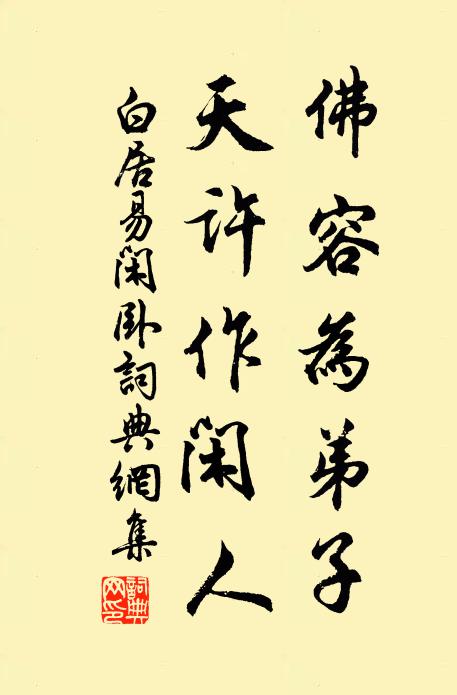 佛容為弟子
天許作閑人
白居易閑臥詞典網集
詞典
网印